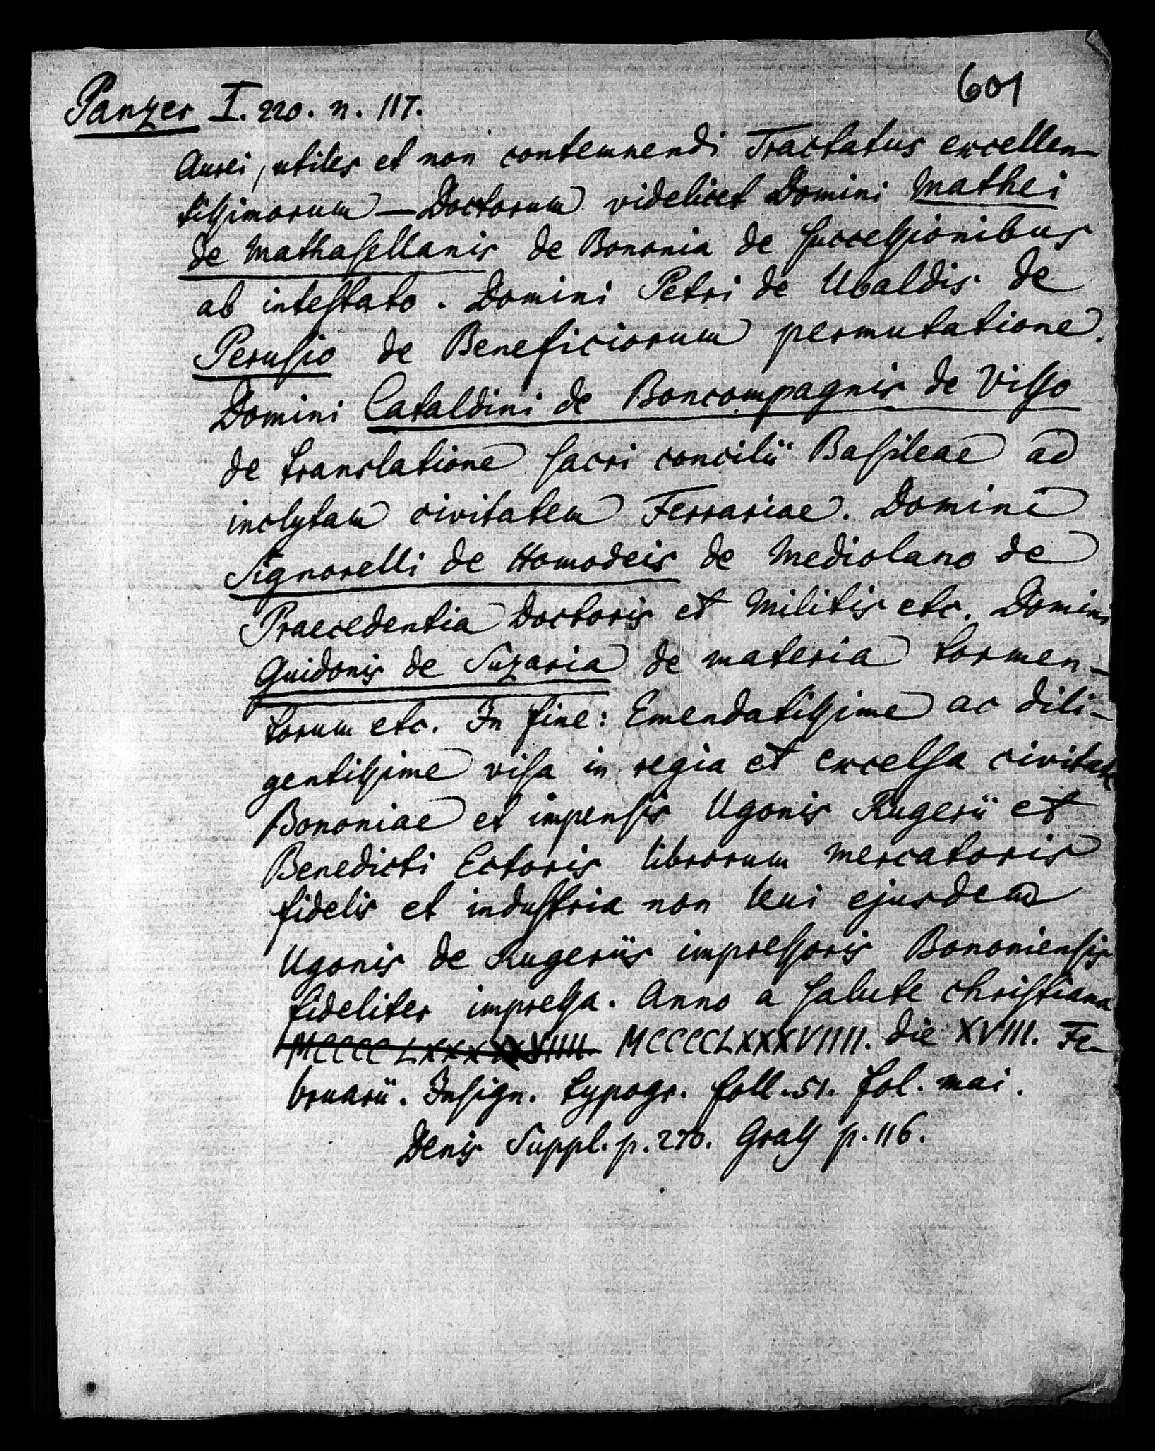 601
Panzer I. 220. n. 117.
Aurei, utiles et non contemnendi Tractatus excellen-
tissimorum — Doctorum videlicet Domini Mathei
de Mathasellanis de Bononia de successionibus
ab intestato. Domini Petri de Ubaldis de
Perusio de Beneficiorum permutatione.
Domini Cataldini de Boncompagnis de Visso
de translatione sacri concilii Basileae ad
inclytam civitatem Ferrariae. Domini
Signorelli de Homodeis de Mediolano de
Praecedentia Doctoris et Militis etc. Domini
Guidonis de Suzaria de materia tormen-
torum etc. In fine: Emendatissime ac dili-
gentissime visa in regia et excelsa civitate
Bononiae et impensis Ugonis Rugerii et
Benedicti Ectoris librorum mercatoris
fidelis et industria non leui ejusdem
Ugonis de Rugeriis impressoris Bononiensis
fideliter impressa. Anno a salute christiana
MCCCCLXXXVIIII. die XVIII. Fe-
bruarii. Insign. typogr. foll. 51. fol. mai.
Denis Suppl. p. 270. Grass p. 116.